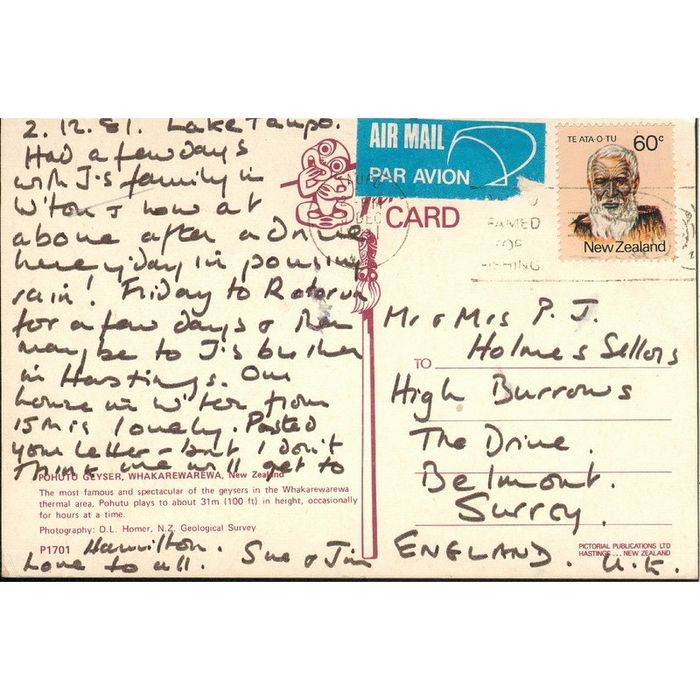 2.12.81. Lake Taupo.
Had a few days
with J's family in
W'ton & now at
above after a drive
here y'day in pouring
rain! Friday to Rotorua
for a few days & then
maybe to J's brother
in Hastings. Our
house in W'ton from
15th is lovely. Posted
your letter - but I don't
think we will get to
Hamilton.
Love to all. Sue & Jim
POHUTU GEYSER, WHAKAREWAREWA, New Zealand
The most famous and spectacular of the geysers in the Whakarewarewa
thermal area, Pohutu plays to about 31m (100 ft) in height, occasionally
for hours at a time.
Photography: D.L. Homer, N.Z. Geological Survey
P1701
AIR MAIL
PAR AVION
CARD
DEC
FAMED
FOR
FISHING
TE ATA-O-TU
60c
New Zealand
Mr & Mrs P. J.
Holmes Sellors
TO
High Burrows
The Drive.
Belmont.
Surrey.
ENGLAND. U.K.
PICTORIAL PUBLICATIONS LTD
HASTINGS ... NEW ZEALAND